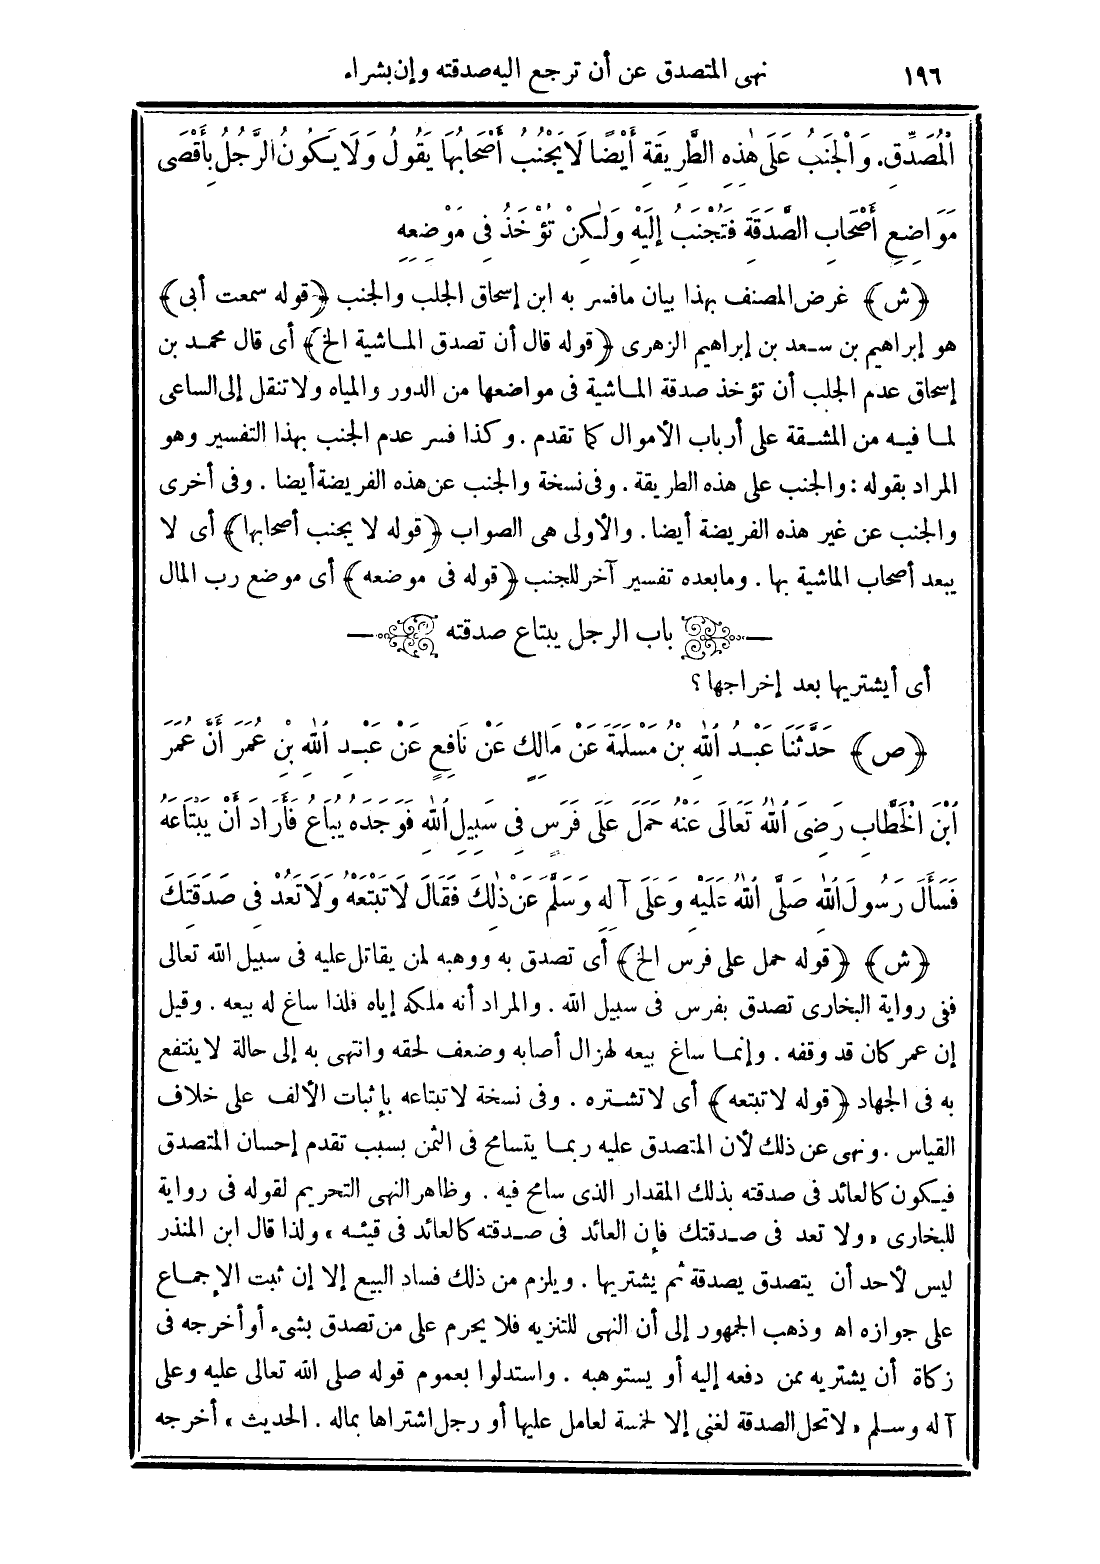 ١٩٦ نهى المتصدق عن أن ترجع اليه صدقته وإن بشراء
الْمُصَدِّقِ. وَالْجَنَبُ عَلَى هٰذِهِ الطَّرِيقَةِ أَيْضًا لَا يَجْنُبُ أَصْحَابُهَا يَقُولُ وَلَا يَكُونُ الرَّجُلُ بِأَقْصَى
مَوَاضِعِ أَصْحَابِ الصَّدَقَةِ فَتُجْنَبُ إِلَيْهِ وَلٰكِنْ تُؤْخَذُ فِى مَوْضِعِهِ
﴿ش﴾ غرض المصنف بهذا بيان مافسر به ابن إسحاق الجلب والجنب ﴿قوله سمعت أبى﴾
هو إبراهيم بن سعد بن إبراهيم الزهرى ﴿قوله قال أن تصدق الماشية الخ﴾ أى قال محمد بن
إسحاق عدم الجلب أن تؤخذ صدقة الماشية فى مواضعها من الدور والمياه ولا تنقل إلى الساعى
لما فيه من المشقة على أرباب الأموال كما تقدم . وكذا فسر عدم الجنب بهذا التفسير وهو
المراد بقوله : والجنب على هذه الطريقة . وفى نسخة والجنب عن هذه الفريضة أيضا . وفى أخرى
والجنب عن غير هذه الفريضة أيضا. والأولى هى الصواب ﴿قوله لا يجنب أصحابها﴾ أى لا
يبعد أصحاب الماشية بها . ومابعده تفسير آخر للجنب ﴿قوله فى موضعه﴾ أى موضع رب المال
باب الرجل يبتاع صدقته
أى أيشتريها بعد إخراجها؟
﴿ص﴾ حَدَّثَنَا عَبْدُ اللهِ بْنُ مَسْلَمَةَ عَنْ مَالِكٍ عَنْ نَافِعٍ عَنْ عَبْدِ اللهِ بْنِ عُمَرَ أَنَّ عُمَرَ
ابْنَ الْخَطَّابِ رَضِىَ اللهُ تَعَالَى عَنْهُ حَمَلَ عَلَى فَرَسٍ فِى سَبِيلِ اللهِ فَوَجَدَهُ يُبَاعُ فَأَرَادَ أَنْ يَبْتَاعَهُ
فَسَأَلَ رَسُولَ اللهِ صَلَّى اللهُ عَلَيْهِ وَعَلَى آلِهِ وَسَلَّمَ عَنْ ذٰلِكَ فَقَالَ لَا تَبْتَعْهُ وَلَا تَعُدْ فِى صَدَقَتِكَ
﴿ش﴾ ﴿قوله حمل على فرس الخ﴾ أى تصدق به ووهبه لمن يقاتل عليه فى سبيل الله تعالى
ففى رواية البخارى تصدق بفرس فى سبيل الله . والمراد أنه ملكه إياه فلذا ساغ له بيعه . وقيل
إن عمر كان قد وقفه . وإنما ساغ بيعه لهزال أصابه وضعف لحقه وانتهى به إلى حالة لا ينتفع
به فى الجهاد ﴿قوله لا تبتعه﴾ أى لا تشتره . وفى نسخة لا تبتاعه بإثبات الألف على خلاف
القياس . ونهى عن ذلك لأن المتصدق عليه ربما يتسامح فى الثمن بسبب تقدم إحسان المتصدق
فيكون كالعائد فى صدقته بذلك المقدار الذى سامح فيه . وظاهر النهى التحريم لقوله فى رواية
للبخارى «ولا تعد فى صدقتك فإن العائد فى صدقته كالعائد فى قيئه» ولذا قال ابن المنذر
ليس لأحد أن يتصدق بصدقة ثم يشتريها . ويلزم من ذلك فساد البيع إلا إن ثبت الإجماع
على جوازه اه وذهب الجمهور إلى أن النهى للتنزيه فلا يحرم على من تصدق بشىء أو أخرجه فى
زكاة أن يشتريه ممن دفعه إليه أو يستوهبه . واستدلوا بعموم قوله صلى الله تعالى عليه وعلى
آله وسلم «لا تحل الصدقة لغنى إلا لخمسة لعامل عليها أو رجل اشتراها بماله . الحديث» أخرجه